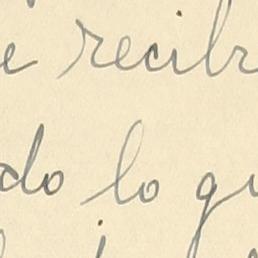 e recibr
do lo qu